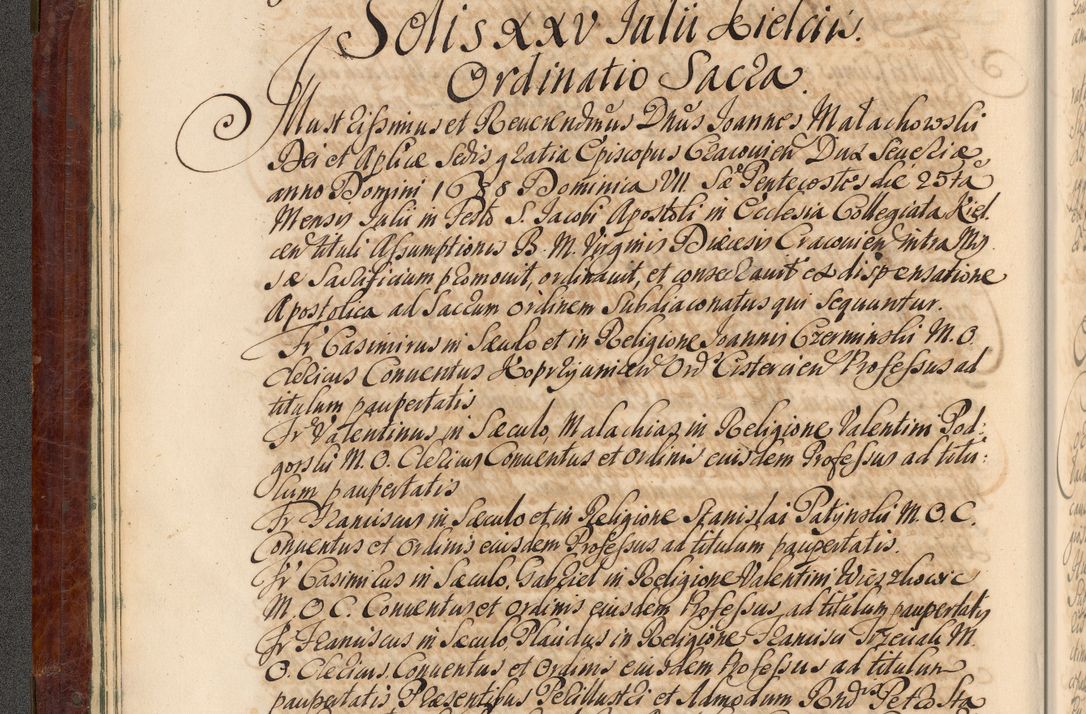 Solis XXV Julii Kielciis.
Ordinatio Sacra.
Illustrissimus et Reverendmus Dnus Joannes Małachowski
Dei et Aplicæ Sedis gratia Episcopus Cracovien Dux Severiæ
anno Domini 1688 Dominica VII Pentecostes die 25ta
Mensis Julii in Festo S. Jacobi Apostoli in Ecclesia Collegiata Kiel
cen tituli Assumptionis B. M. Virginis Diæcesis Cracovien intra Mis
sæ Sacrificium promovit, ordinavit, et consecravit ex dispensatione
Apostolica ad Sacrum ordinem Subdiaconatus qui sequuntur.
Fr Casimirus in Sæculo et in Religione Joannis Czerminski M. O.
Clericus Conventus Koprzyvnicen Ord Cistercien Professus ad
titulum paupertatis
Fr Valentinus in Sæculo, Malachias in Religione Valentini Pod:
gorski M. O. Clericus Conventus et ordinis eiusdem Professus ad titu:
lum paupertatis
Fr Franciscus in Sæculo et in Religione Stanislai Patynski M. O. C.
Conventus et ordinis eiusdem Professus ad titulum paupertatis.
Fr Casimirus in Sæculo, Gabriel in Religione Valentini
M. O. C. Conventus et ordinis eiusdem Professus ad titulum paupertatis
Fr Franciscus in Sæculo, Placidus in Religione Francisci M.
O. Clericus Conventus et Ordinis eiusdem Professus ad titulum
paupertatis Præsentibus Perillustri et Admodum Rndis Petro